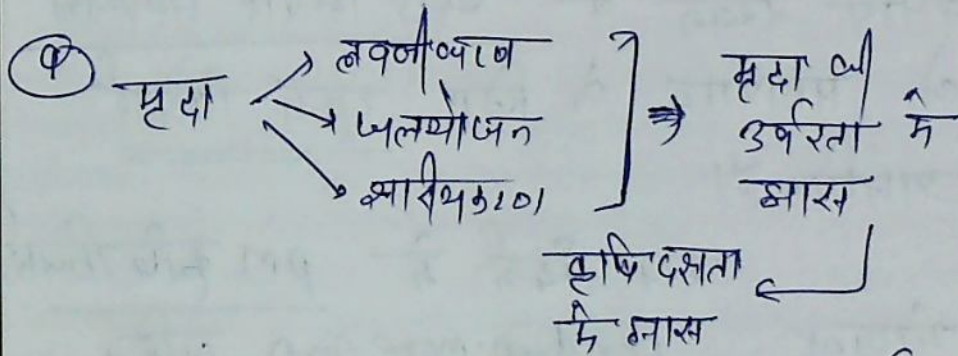 ④ मृदा → लवणीकरण
→ जलयोजन
→ क्षारीयकरण
⇒ मृदा की
उर्वरता में
ह्रास
कृषि दक्षता
में ह्रास